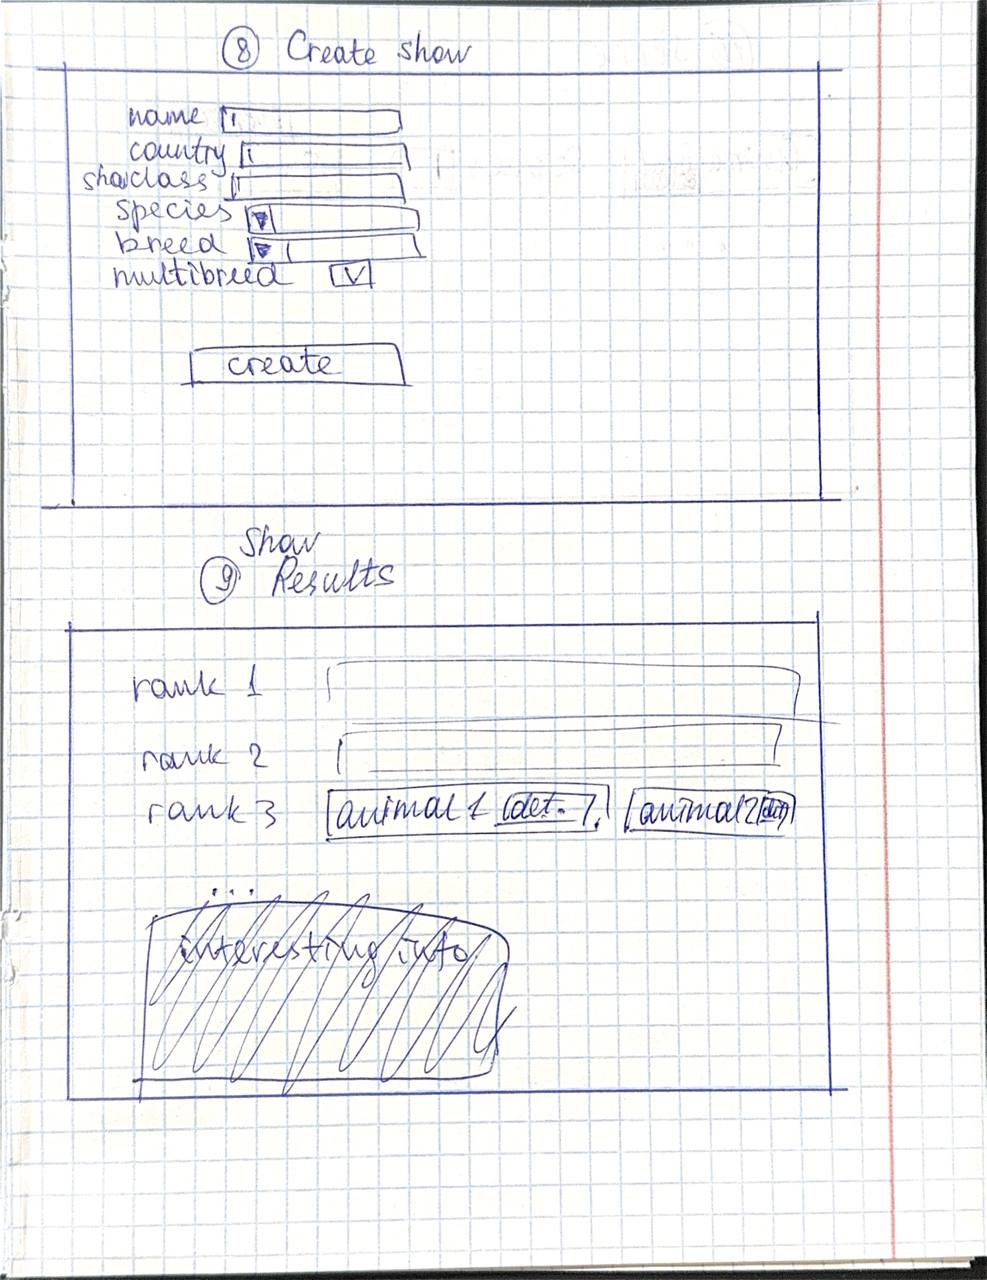 8 Create show
name
country
showclass
species
breed
multibreed V
create
Show
9 Results
rank 1
rank 2
rank 3 animal 1 det. animal 2
...
interesting info